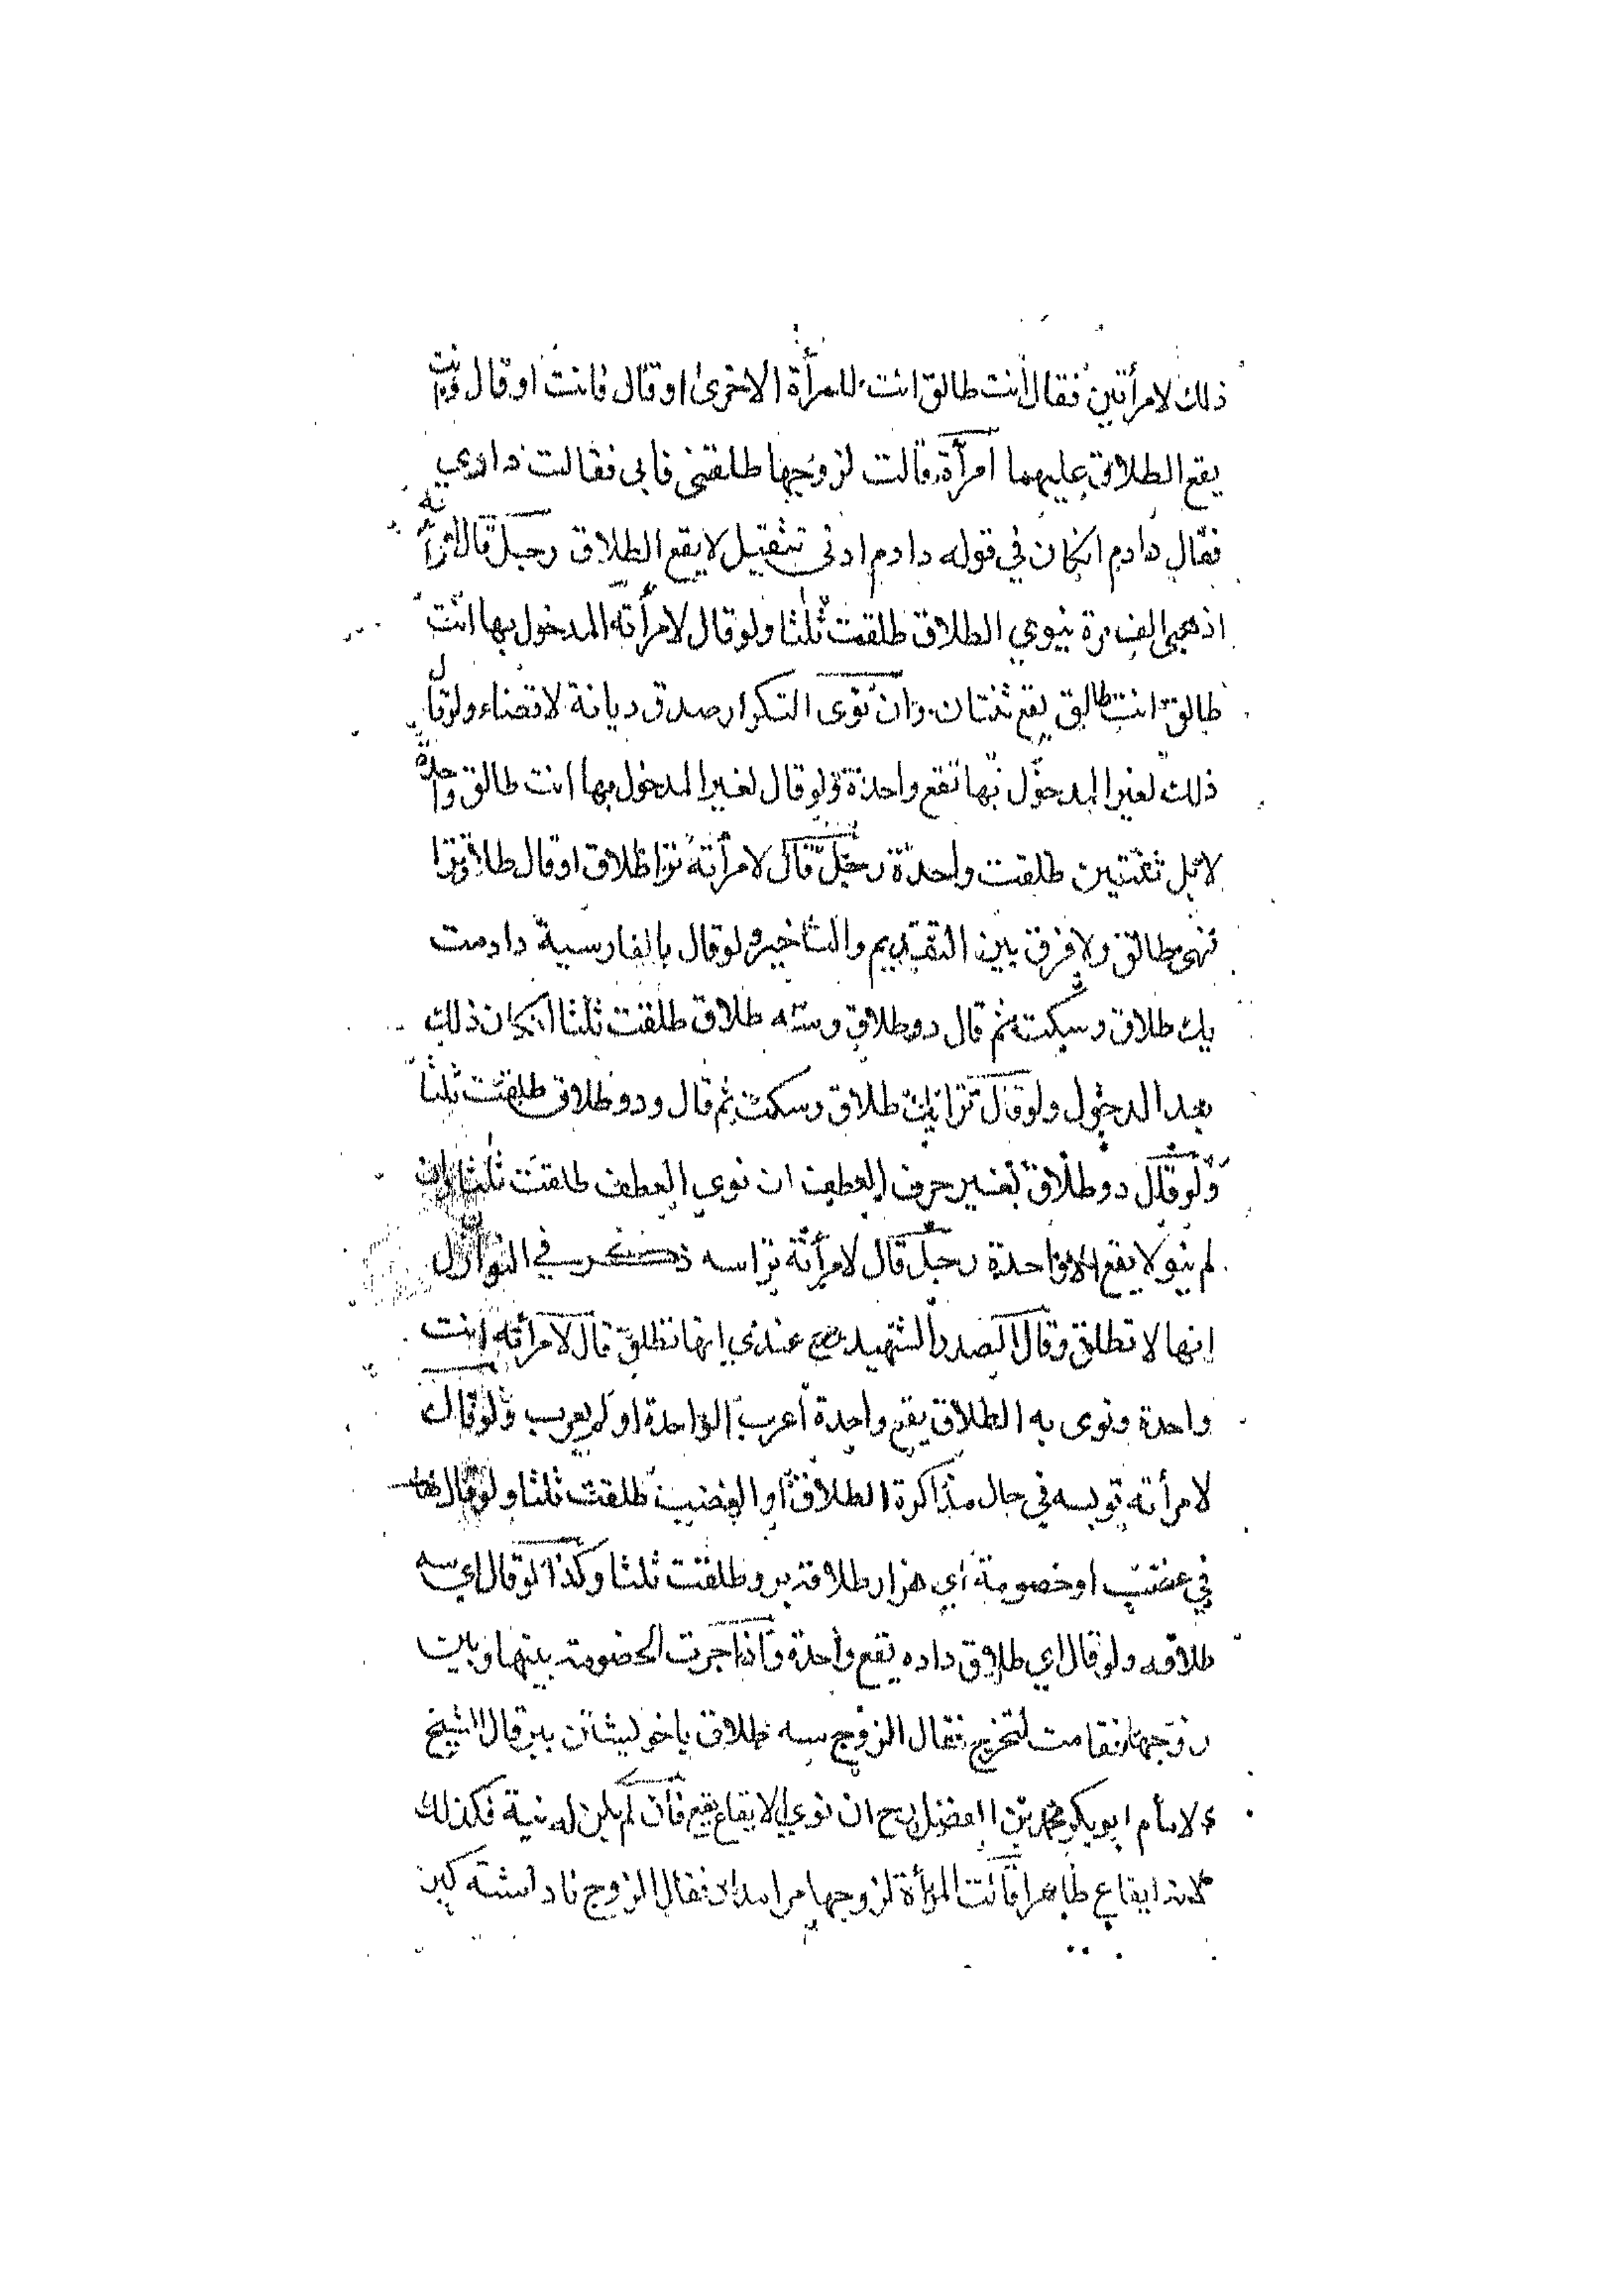 ذلك لامرأتين فقال انت طالق انت للمرأة الاخرى او قال فانت او قال وانت
يقع الطلاق عليهما امرأة قالت لزوجها طلقني فابى فقالت دادي
فقال دادم انكان في قوله دادم ادنى تثقيل لا يقع الطلاق رجل قال لامرأته
اذهبي الف مرة ينوي الطلاق طلقت ثلثا ولو قال لامرأته المدخول بها انت
طالق انت طالق يقع ثنتان وان نوى التكرار صدق ديانة لا قضاء ولو قال
ذلك لغير المدخول بها تقع واحدة ولو قال لغير المدخول بها انت طالق واحدة
لا بل ثنتين طلقت واحدة رجل قال لامرأته ترا طلاق او قال طلاق ترا
فهي طالق ولا فرق بين التقديم والتاخير ولو قال بالفارسية دادمت
يك طلاق وسكت ثم قال دو طلاق وسه طلاق طلقت ثلثا انكان ذلك
بعد الدخول ولو قال ترا يك طلاق وسكت ثم قال ودو طلاق طلقت ثلثا
ولو قال دو طلاق بغير حرف العطف ان نوي العطف طلقت ثلثا وان
لم ينو لا يقع الا واحدة رجل قال لامرأته ترا سه ذكر في النوازل
انها لا تطلق وقال الصدر الشهيد رح عندي انها تطلق قال لامرأته انت
واحدة ونوى به الطلاق يقع واحدة اعرب الواحدة او لم يعرب ولو قال
لامرأته تو بسه في حال مذاكرة الطلاق او الغضب طلقت ثلثا ولو قال لها
في غضب او خصومة اي هزار طلاقه برو طلقت ثلثا وكذا لو قال اي سه
طلاقه ولو قال اي طلاق داده يقع واحدة واذا جرت الخصومة بينها وبين
زوجها فقامت لتخرج فقال الزوج سه طلاق با خويشتن ببر قال الشيخ
الامام ابو بكر محمد بن الفضل رح ان نوي الايقاع يقع فان لم يكن له نية فكذلك
لانه ايقاع ظاهرا قالت المرأة لزوجها مرا فقال الزوج نا داشته كير